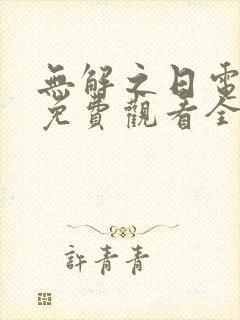 無解之日電
免費觀看全
許青青